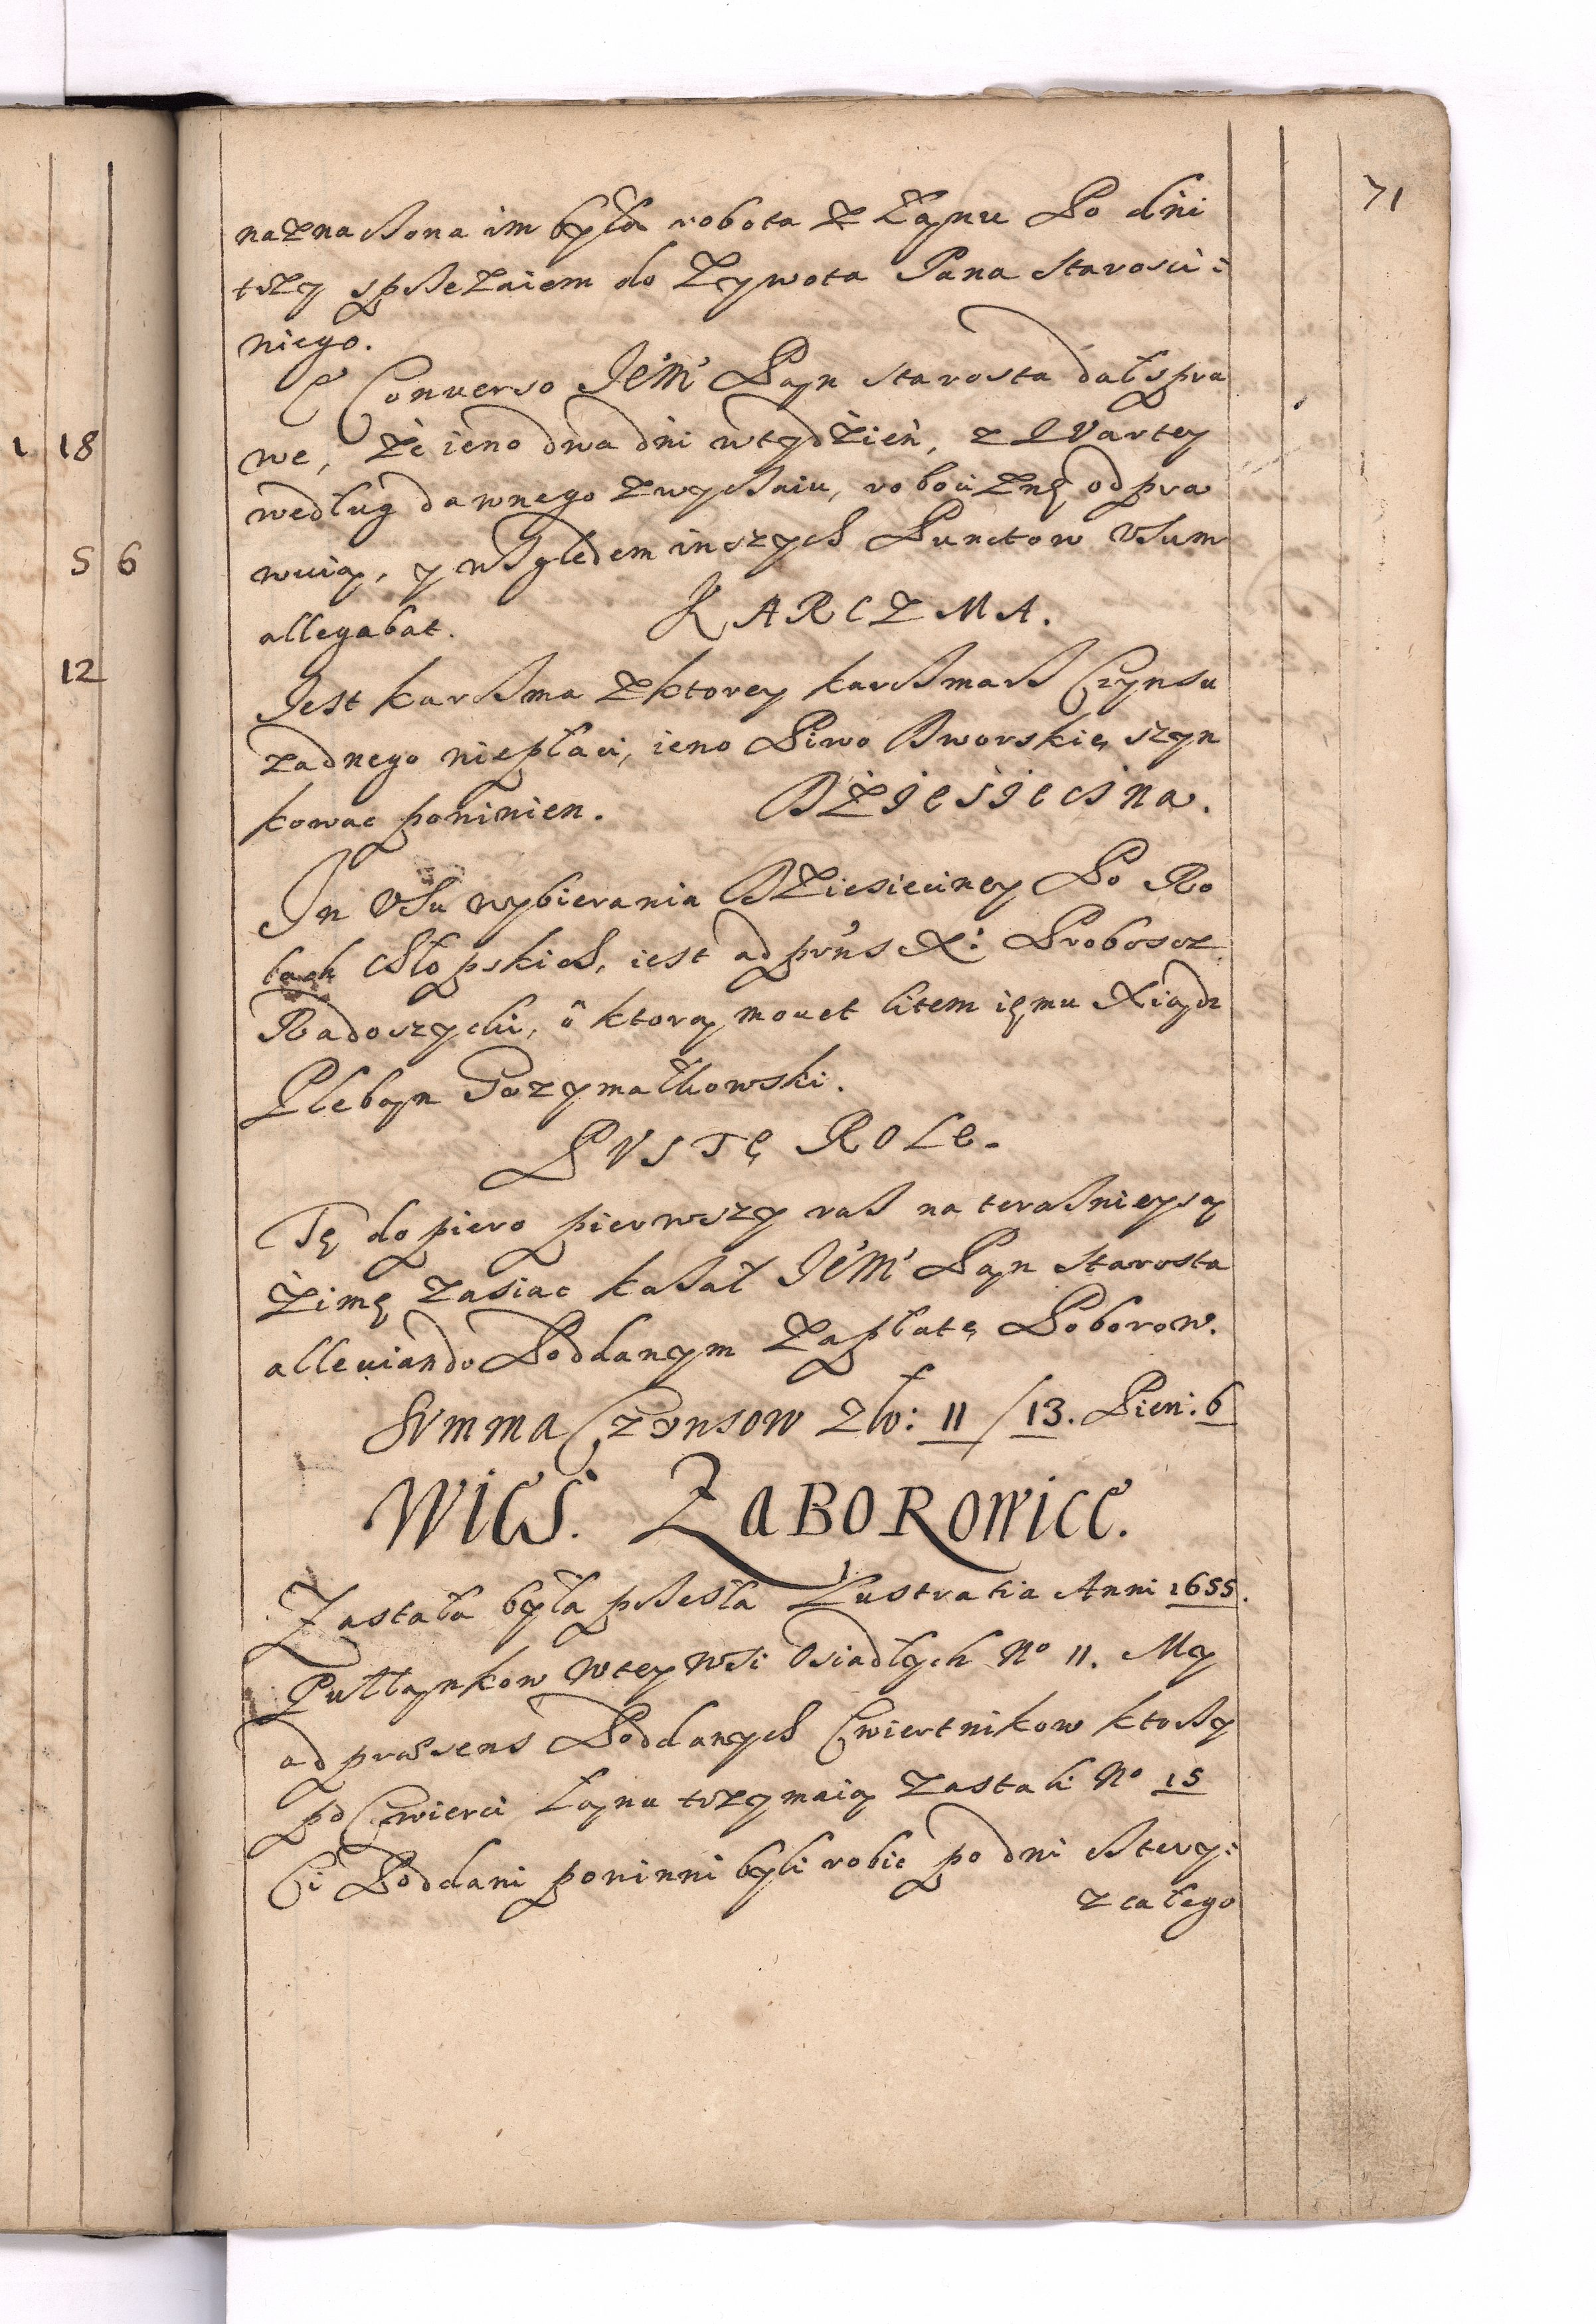 71
naznaczona im była robota z Łanu Po dni
trzy sprzężaiem do Zywota Pana Starosci:
niego.
E Conuerso JeM Pan Starosta dał spra
we, że ieno dwa dni w tydzień, z Qvartey
według dawnego zwyczaiu, robociznę odpra
wuią, y względem inszych Punctow Vsum
allegabat. KARCZMA.
Jest karczma z ktorey karczmarz Czynsu
zadnego niepłaci, ieno Piwo Dworskie szyn
kowac powinien. DZIESIĘCINA.
Jn Vsu wybierania Dziesięciney Po Ro
lach chłopskich, iest ad prńs X: Proboscz
Radoszycki, o ktorą mouet litem iemu Xiądz
Pleban Grzymałkowski.
PVSTE ROLE.
Te dopiero pierwszy raz na teraznieyszą
Zimę zasiac kazał JeM Pan Starosta
alleuiando Poddanym Zapłatę Poborow.
SVMMA Czynsow Zło: 11 / 13. Pien: 6
WIES. ZABOROWICE.
Zastała była przeszła Lustratia Anni 1655.
Pułłankow w tey Wsi Osiadłych No 11. My
ad præsens Poddanych Cwiertnikow ktorzy
po Cwierci Łanu trzymaią zastali No 15
Ci Poddani powinni byli robic po dni cztery:
z całego
1 18
5 6
12